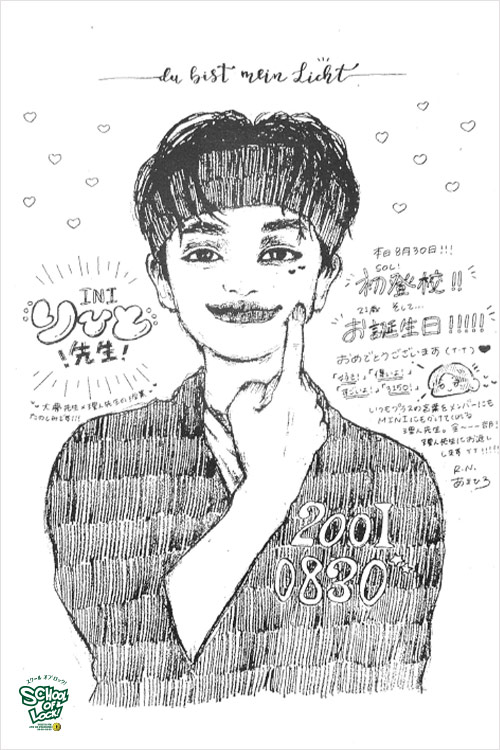 du bist mein Licht
INI
りひと
先生!
大夢先生と理人先生の授業
たのしみです!!!
本日8月30日!!!
SOL!
初登校!!
21歳 そして...
お誕生日!!!!!
おめでとうございます(T-T)♥
いつもプラスの言葉をメンバーにも
MINIにもかけてくれる
理人先生。全〜〜〜部!
理人先生にお返し
します!!!!!!
R.N.
あまひろ
2001
0830
スクール オブ ロック!
SCHOOL
OF
LOCK!